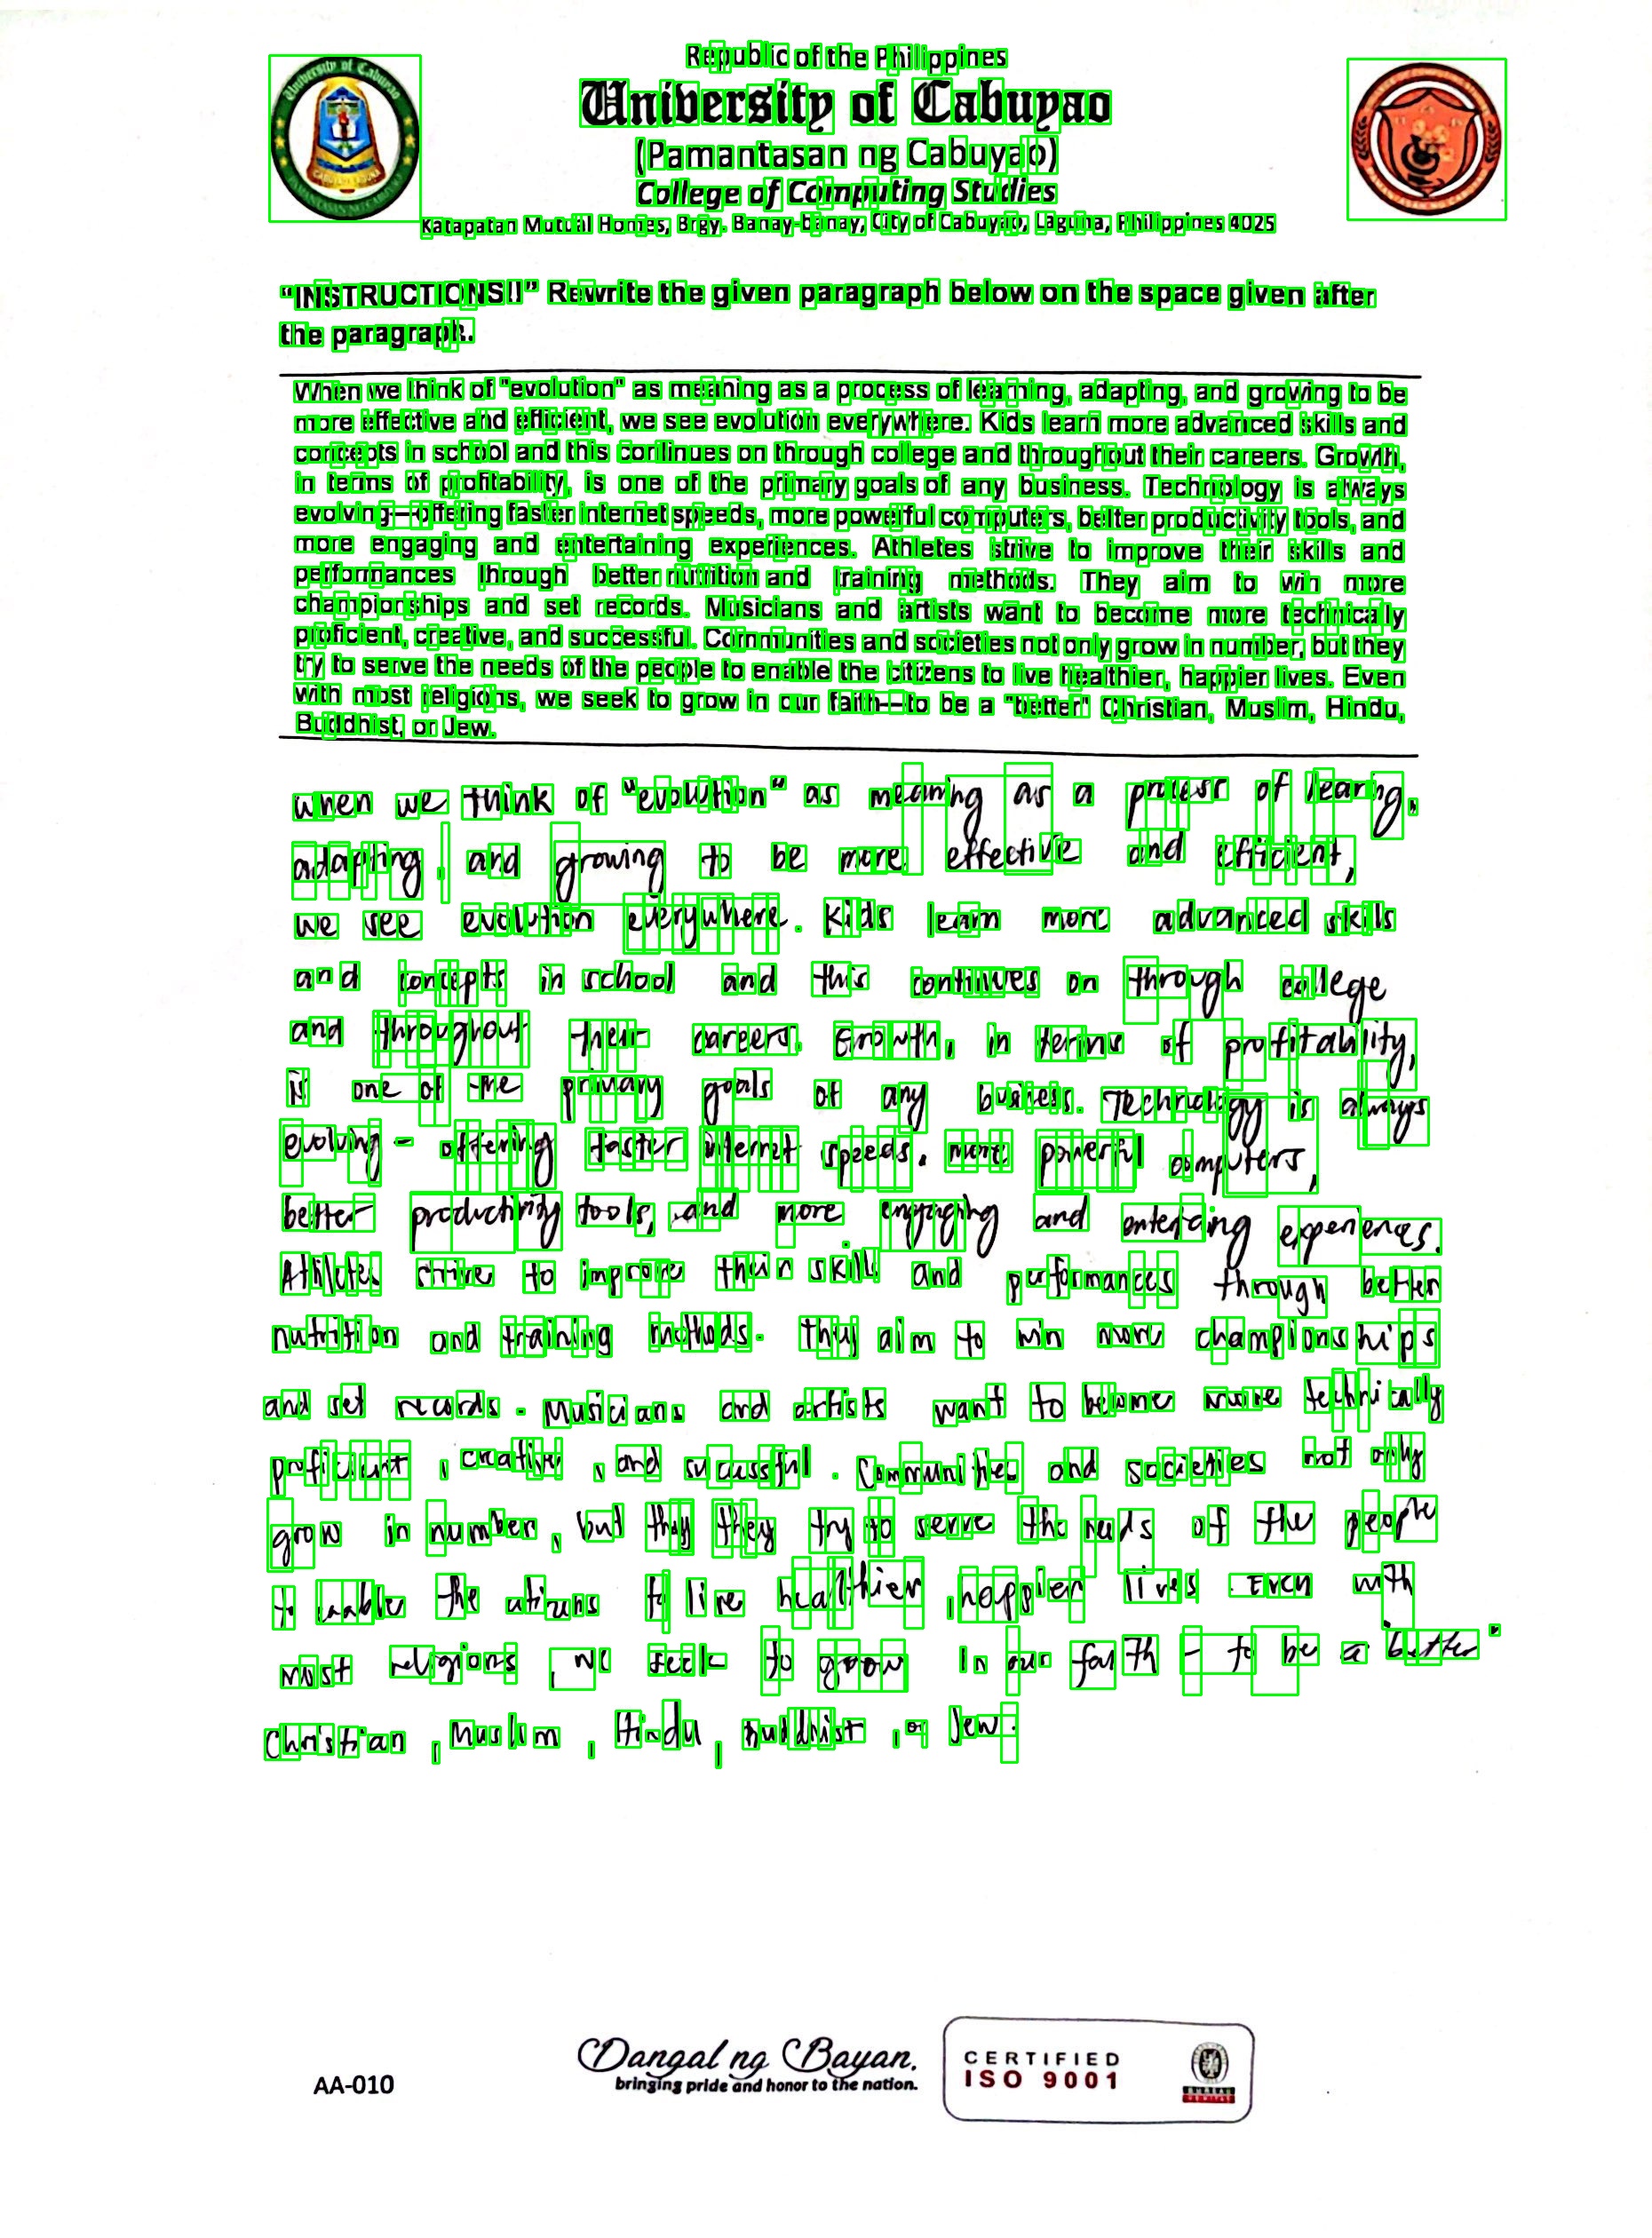 Republic of the Philippines
University of Cabuyao
(Pamantasan ng Cabuyao)
College of Computing Studies
Katapatan Mutual Homes, Brgy. Banay-banay, City of Cabuyao, Laguna, Philippines 4025
University of Cabuyao
PAMANTASAN NG CABUYAO
“INSTRUCTIONS!!” Rewrite the given paragraph below on the space given after
the paragraph.
When we think of "evolution" as meaning as a process of learning, adapting, and growing to be
more effective and efficient, we see evolution everywhere. Kids learn more advanced skills and
concepts in school and this continues on through college and throughout their careers. Growth,
in terms of profitability, is one of the primary goals of any business. Technology is always
evolving—offering faster internet speeds, more powerful computers, better productivity tools, and
more engaging and entertaining experiences. Athletes strive to improve their skills and
performances through better nutrition and training methods. They aim to win more
championships and set records. Musicians and artists want to become more technically
proficient, creative, and successful. Communities and societies not only grow in number, but they
try to serve the needs of the people to enable the citizens to live healthier, happier lives. Even
with most religions, we seek to grow in our faith—to be a "better" Christian, Muslim, Hindu,
Buddhist, or Jew.
when we think of "evolution" as meaning as a process of learing,
adapting, and growing to be more effective and efficient,
we see evolution everywhere. Kids learn more advanced skills
and concepts in school and this continues on through college
and throughout their careers. Growth, in terms of profitability,
is one of the primary goals of any business. Technology is always
evolving - offering faster internet speeds, more powerful computers,
better productivity tools, and more engaging and enterging experiences.
Athletes strive to improve their skills and performances through better
nutrition and training methods. They aim to win more championships
and set records. Musicians and artists want to become more technically
proficient, creative, and successful. Communities and societies not only
grow in number, but they they try to serve the needs of the people
to enable the citizens to live healthier, happier lives. Even with
most religions, we seek to grow in our faith - to be a better"
Christian, Muslim, Hindu, Buddhist, or Jew.
AA-010
Dangal ng Bayan.
bringing pride and honor to the nation.
CERTIFIED
ISO 9001
BUREAU
VERITAS